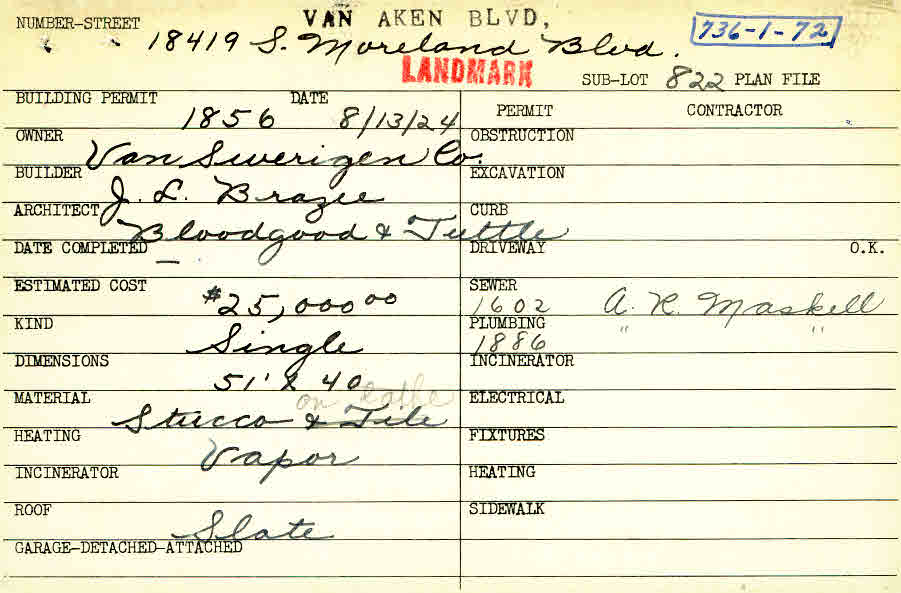 VAN AKEN BLVD,
NUMBER-STREET 18419 S. Moreland Blvd. 736-1-72
LANDMARK
SUB-LOT 822 PLAN FILE
BUILDING PERMIT 1856 DATE 8/13/24
PERMIT CONTRACTOR
OWNER Van Swerigen Co.
OBSTRUCTION
BUILDER J. L. Brazie
EXCAVATION
ARCHITECT Bloodgood & Tuttle
CURB
DATE COMPLETED —
DRIVEWAY O.K.
ESTIMATED COST $25,000 00
SEWER 1602 A. R. Maskell
KIND Single
PLUMBING 1886 " "
DIMENSIONS 51' x 40
INCINERATOR
MATERIAL Stucco & Tile on lathe
ELECTRICAL
HEATING Vapor
FIXTURES
INCINERATOR
HEATING
ROOF Slate
SIDEWALK
GARAGE-DETACHED-ATTACHED